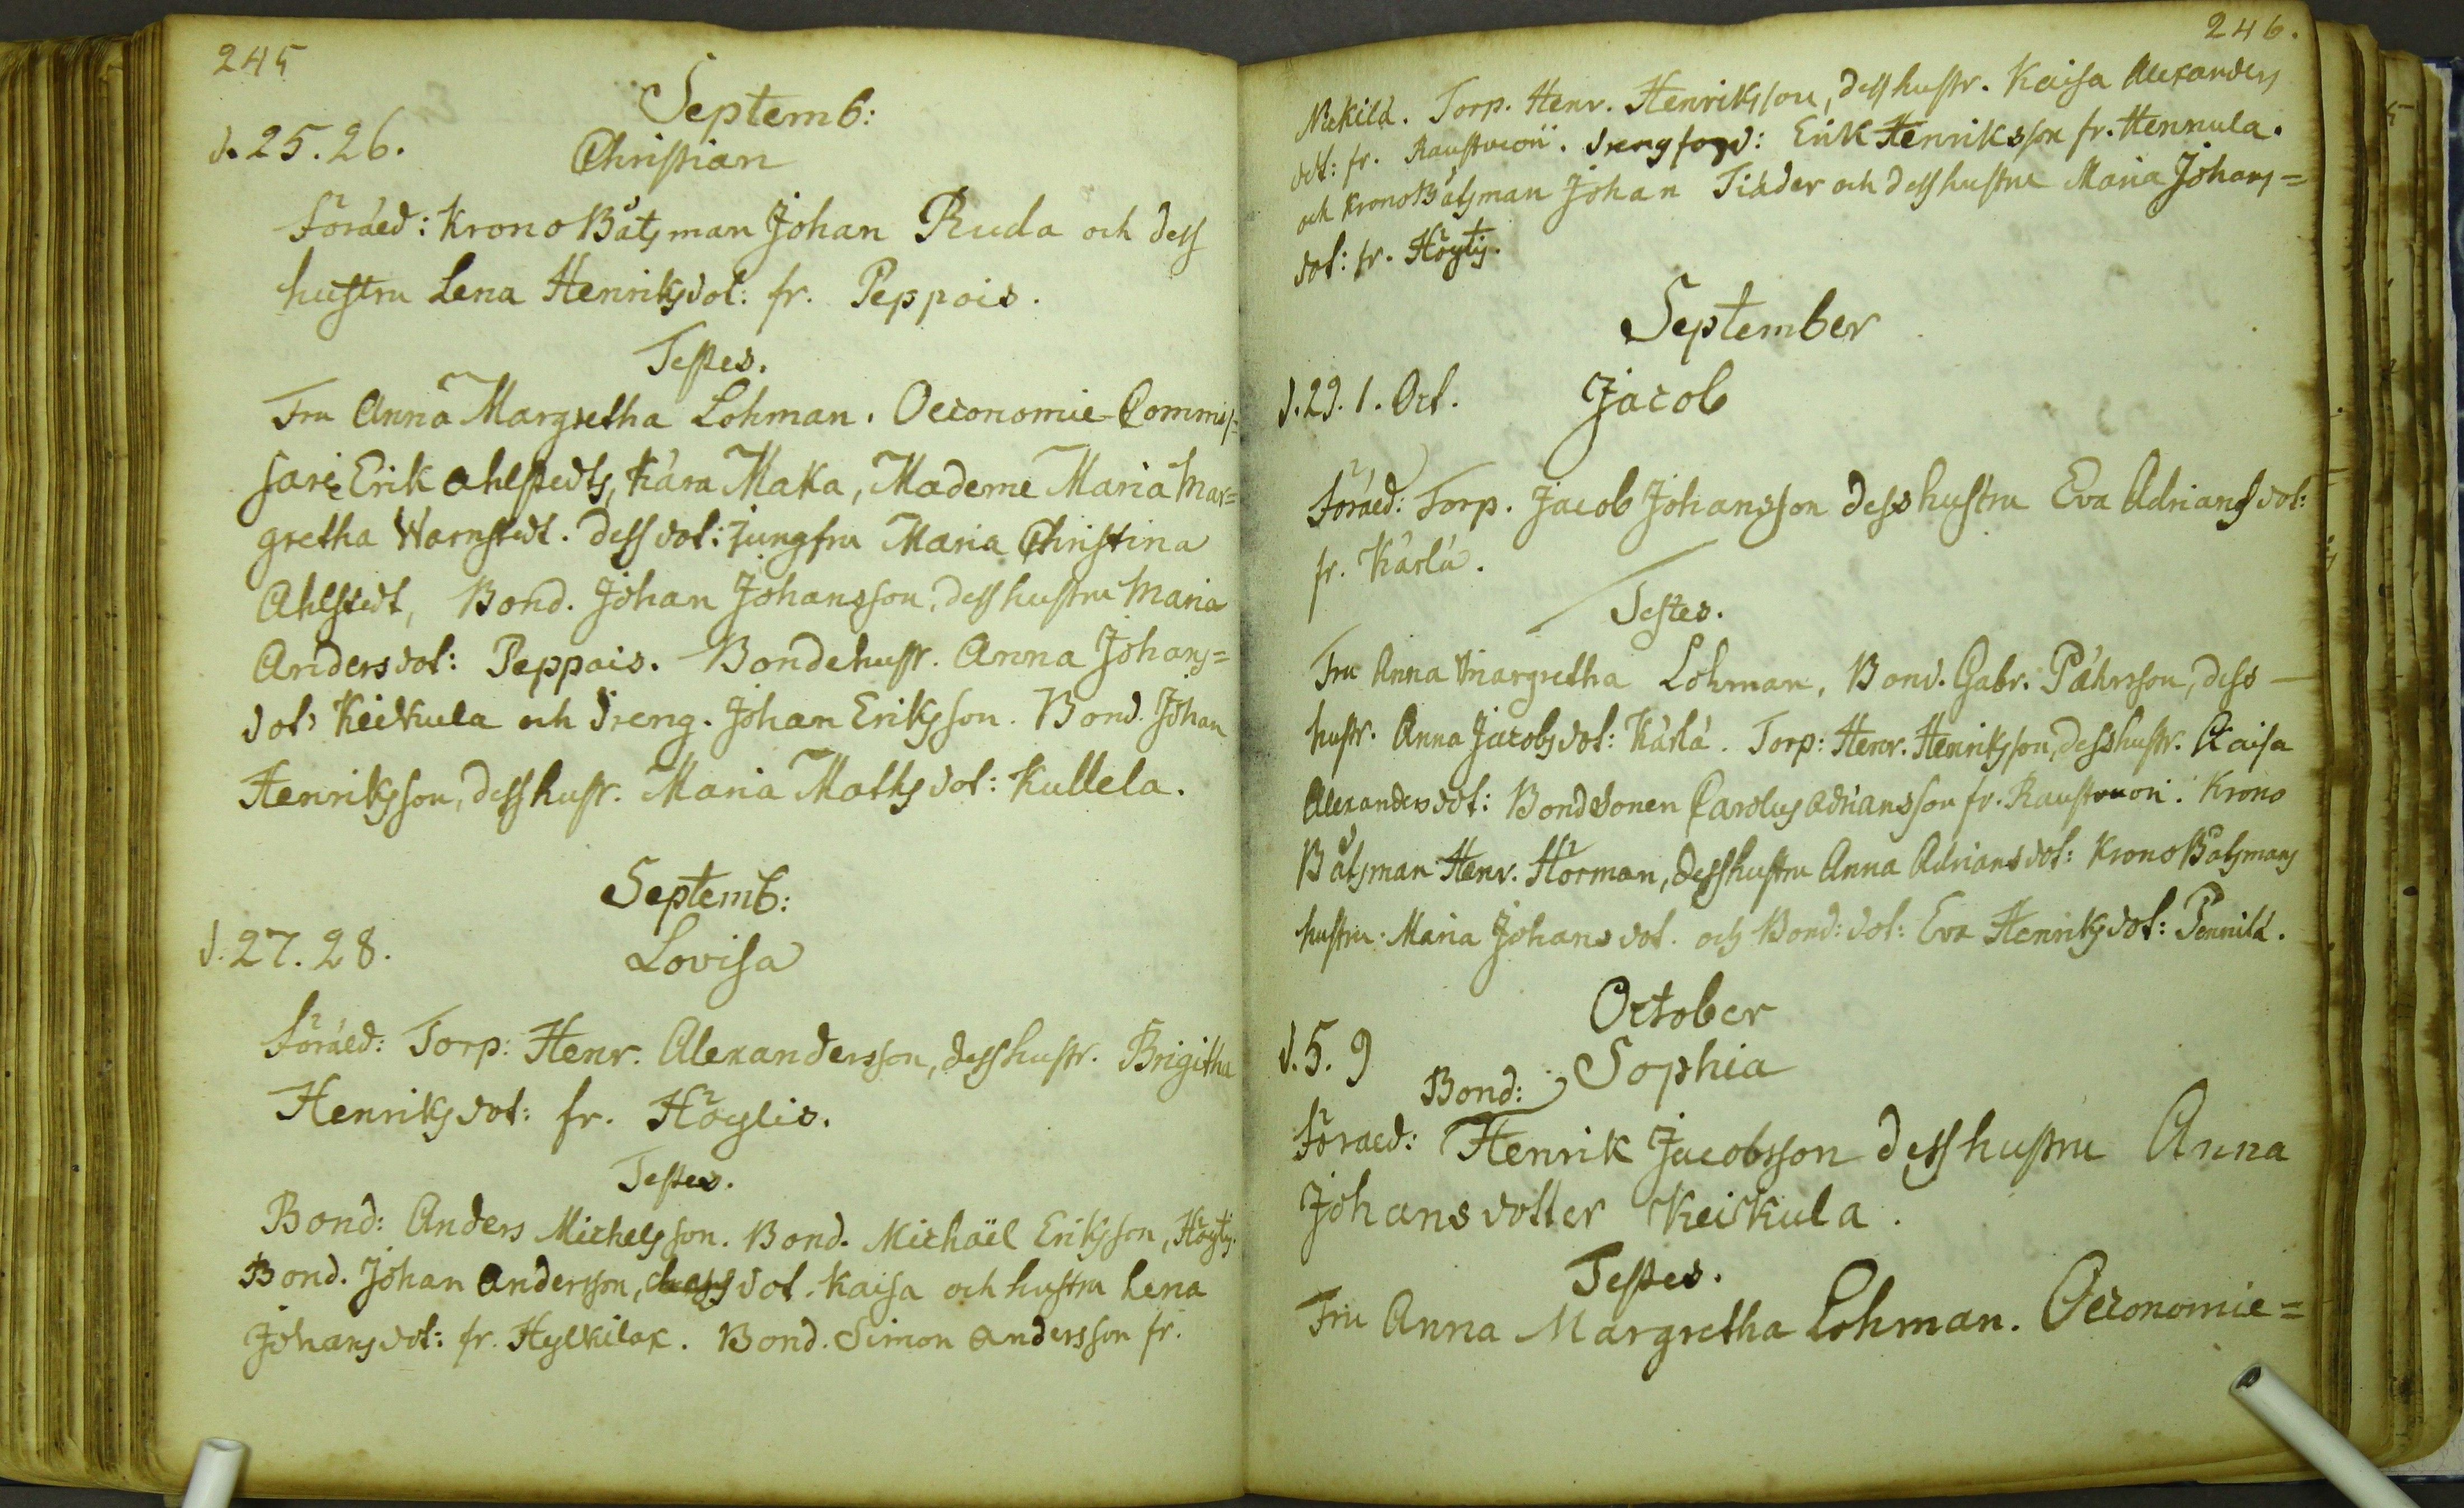 245
Septemb:
d. 25. 26.
Christian
Föräld: Krono Båtsman Johan Ruda och dess
hustru Lena Henriksdot: fr. Peppois.
Testes.
Fru Anna Margretha Lohman. Oeconomie-Commis=
sarie Erik Ahlstedts, Kära Maka, Madame Maria Mar=
gretha Warnstedt. dess dot: jungfru Maria Christina
Ahlstedt, Bond. Johan Johansson, dess hustru Maria
Andersdot: Peppois. Bondehustr. Anna Johans=
dot: Keikula och dreng. Johan Eriksson. Bond. Johan
Henriksson, dess hustr. Maria Mathsdot: Kullela.
Septemb:
d. 27. 28.
Lovisa
Föräld: Torp: Henr. Alexandersson, dess hustr. Brigitha
Henriksdot: fr. Höylis.
Testes.
Bond: Anders Michelsson. Bond. Michaël Eriksson, Höylis.
Bond. Johan Andersson, dot. Kaisa och hustru Lena
Johansdot: fr. Hylkilax. Bond. Simon Andersson fr.
246.
Nickilä. Torp. Henr. Henriksson, dess hustr. Kaisa Alexanders
dot: fr. Raustvuori. Dreng: Erik Henriksson fr. Hennula.
och Krono Båtsman Johan Tiäder och dess hustru Maria Johans=
dot: fr. Höylis.
September
d. 29. 1. Oct.
Jacob
Föräld: Torp. Jacob Johansson dess hustru Eva Adriansdot:
fr. Kärlä.
Testes.
Fru Anna Margretha Lohman, Bond. Gabr. Påhrsson, dess
hustr. Anna Jacobsdot: Kärlä. Torp: Henr. Henriksson, dess hustr. Kaisa
Alexandersdot: Bondsonen Carolus Adriansson fr. Raustvuori. Krono
Båtsman Henr. Hörman, dess hustru Anna Adriansdot: Krono Båtsmans
hustru. Maria Johansdot. och Bond: dot: Eva Henriksdot: Pennilä.
October
d. 5. 9
Sophia
Bond:
Föräld: Henrik Jacobsson dess hustru Anna
Johansdotter Keikula.
Testes.
Fru Anna Margretha Lohman. Oeconomie=